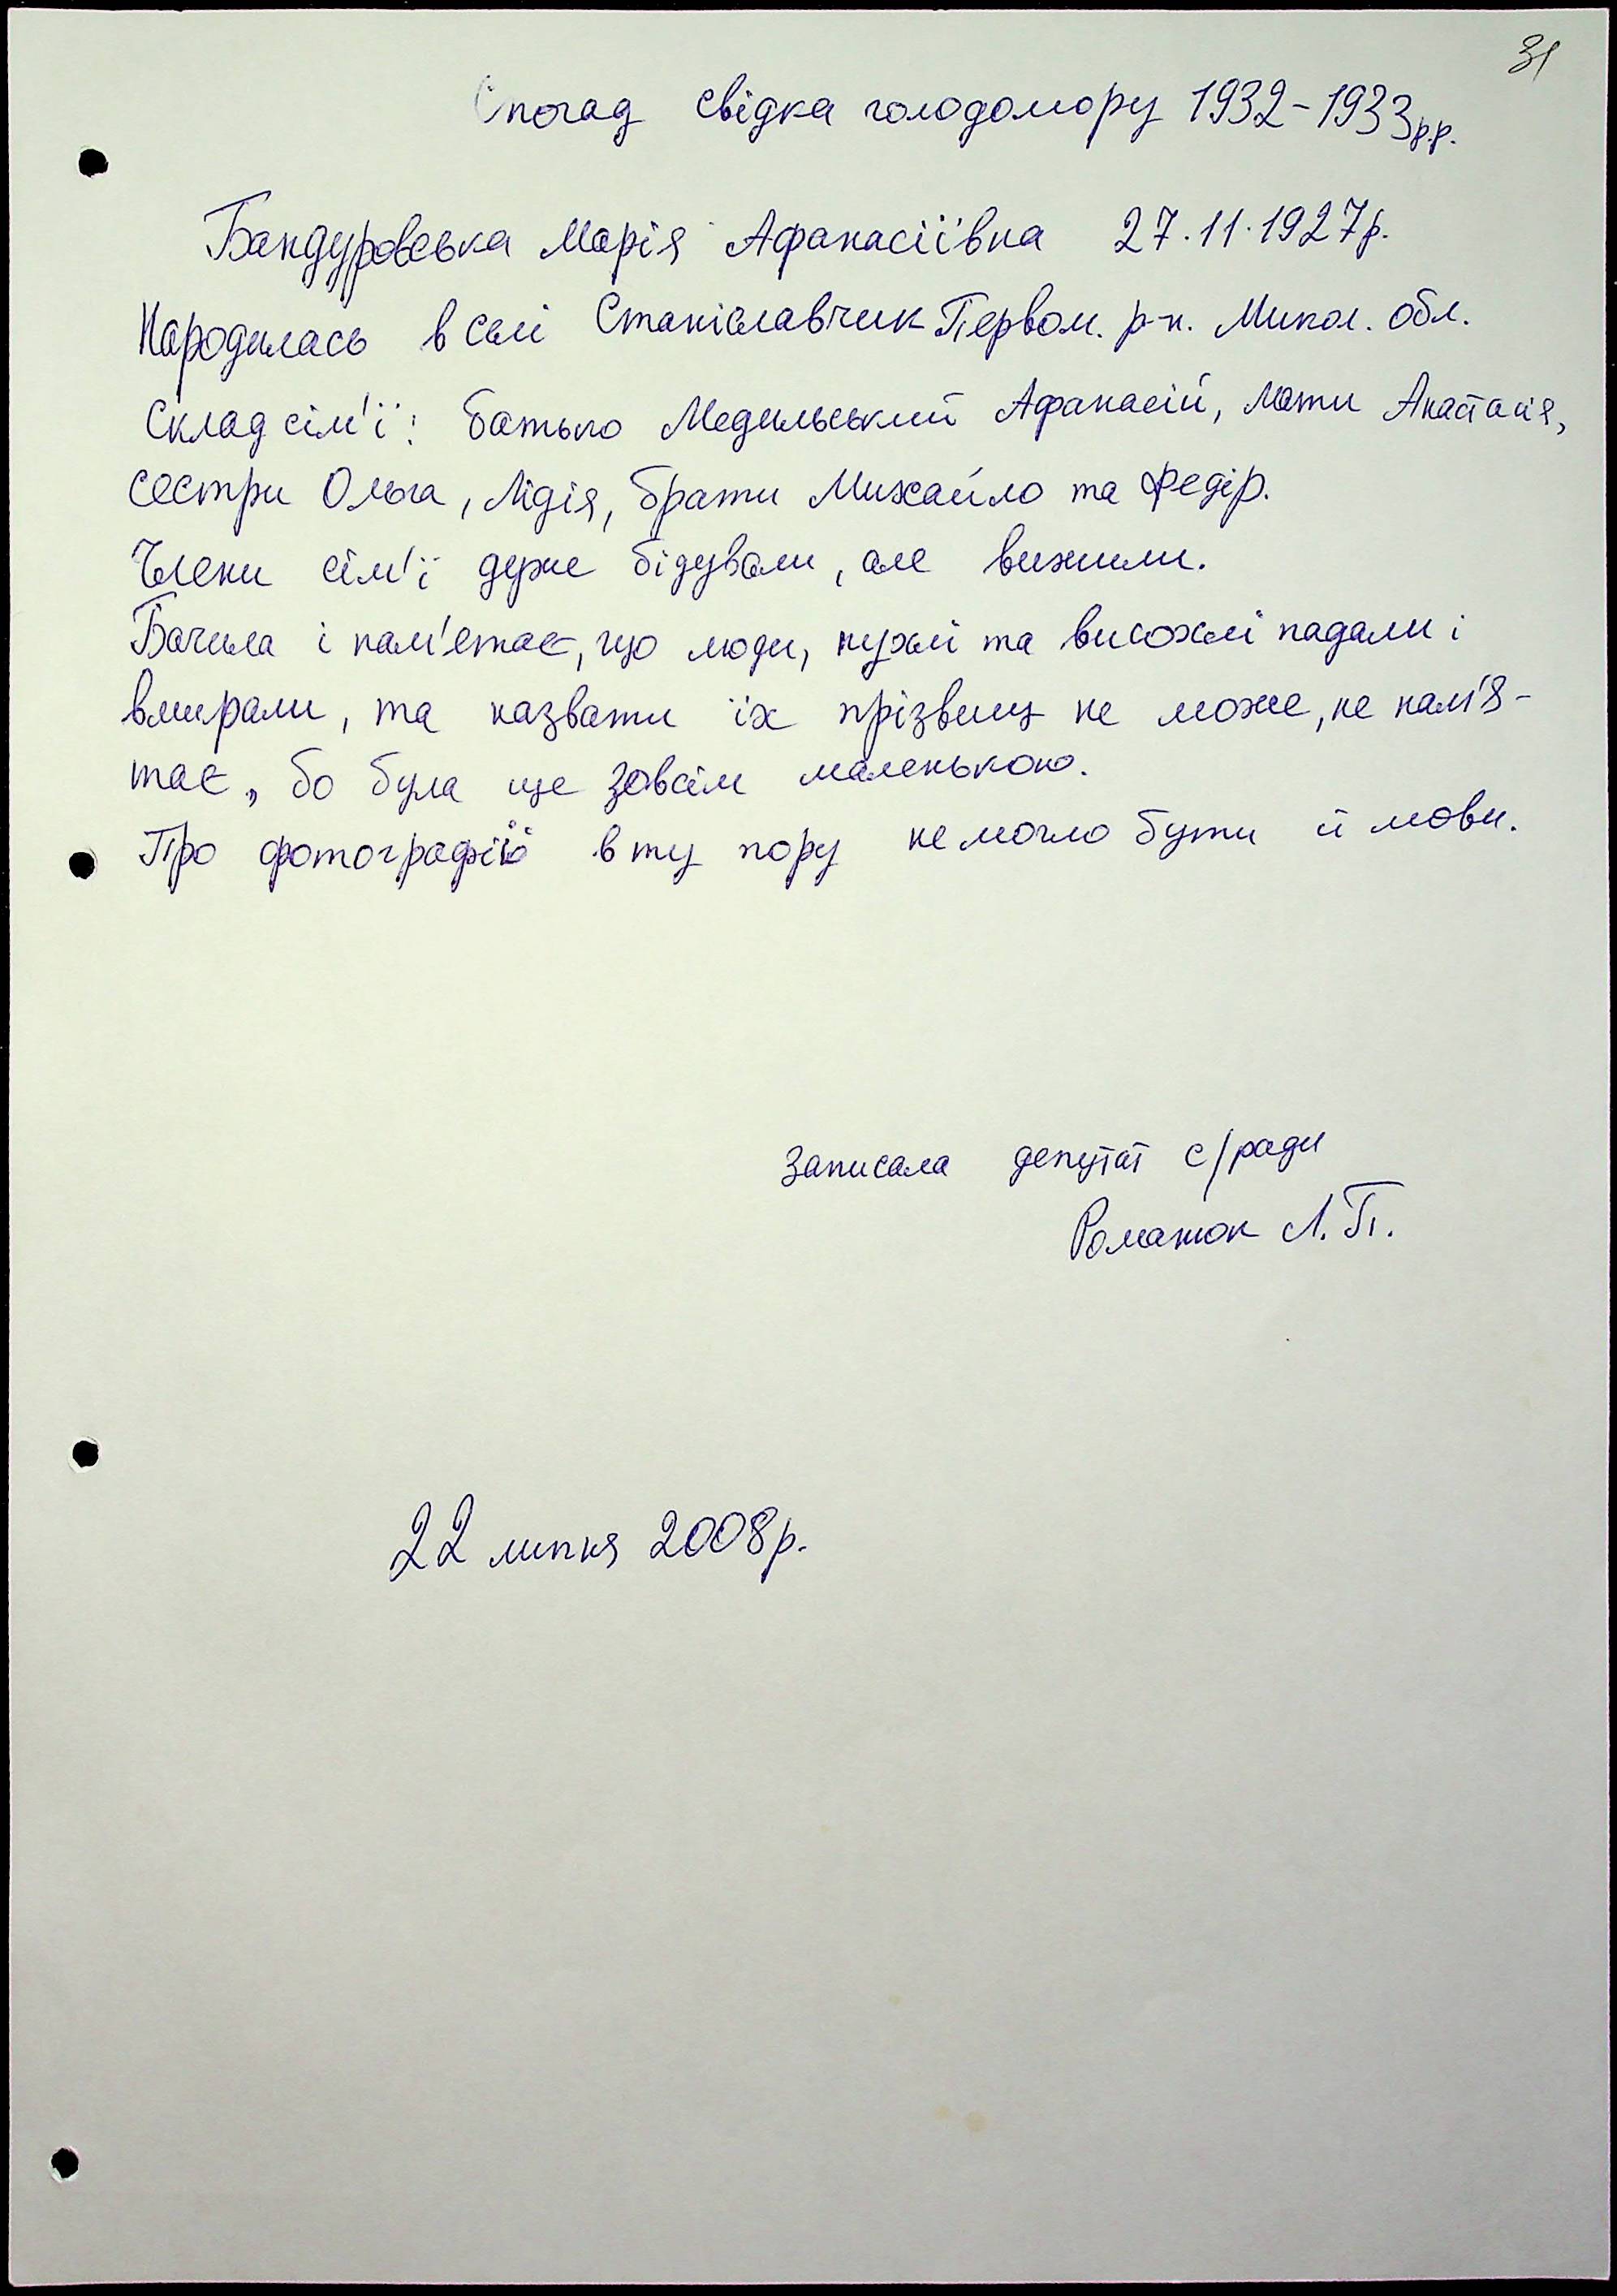 31
Спогад свідка голодомору 1932-1933р.р.
Бандуровська Марія Афанасіївна 27.11.1927р.
Народилась в селі Станіславчик Первом. р-н. Микол. обл.
Склад сім'ї: батько Медильський Афанасій, мати Анастасія,
сестри Ольга, Лідія, брати Михайло та Федір.
Члени сім'ї дуже бідували, але вижили.
Бачила і пам'ятає, що люди, пухлі та висохлі падали і
вмирали, та назвати їх прізвищ не може, не пам'я-
тає, бо була ще зовсім маленькою.
Про фотографії в ту пору не могло бути й мови.
Записала депутат с/ради
Романюк Л.П.
22 липня 2008р.